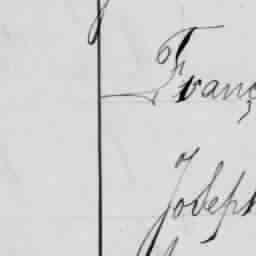 Franç
Joseph